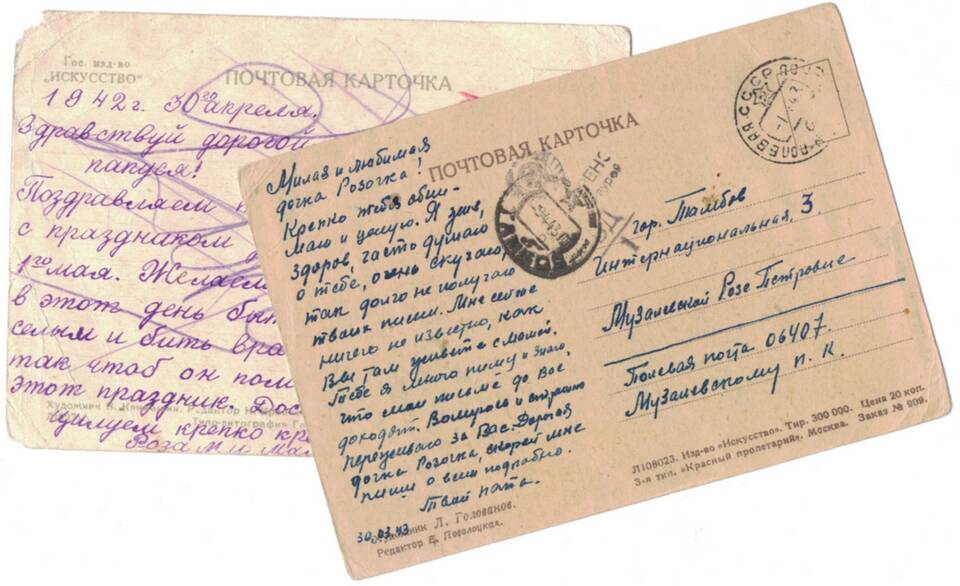 Гос. изд-во
"ИСКУССТВО"
ПОЧТОВАЯ КАРТОЧКА
1942г. 30го апреля.
Здравствуй дорогой
папуся!
Поздравляем
с праздником
1го мая. Желаем
в этот день бы
селым и бить вра
так чтоб он пом
этот праздник. Дос
целуем крепко кр
Роза М и Ма
ПОЧТОВАЯ КАРТОЧКА
Милая и любимая
дочка Розочка!
Крепко тебя обни-
маю и целую. Я жив,
здоров, часто думаю
о тебе, очень скучаю,
так долго не получаю
твоих писем. Мне сейчас
ничего не известно, как
Вы там живете с мамой.
Тебе я много пишу и знаю,
что мои письма до Вас
доходят. Волнуюсь и
переживаю за Вас. Дорогая
дочка Розочка, скорей мне
пиши о всем подробно.
Твой папа.
30.03.43
Художник Л. Голованов.
Редактор Е. Поволоцкая.
ТАМБОВ
ПОЛЕВАЯ СССР
гор. Тамбов
Интернациональная, 3
Музалевской Розе Петровне
Полевая почта 06407.
Музалевскому П. К.
Л108023. Изд-во «Искусство». Тир. 300 000. Цена 20 коп.
3-я тип. «Красный пролетарий». Москва. Заказ № 909.